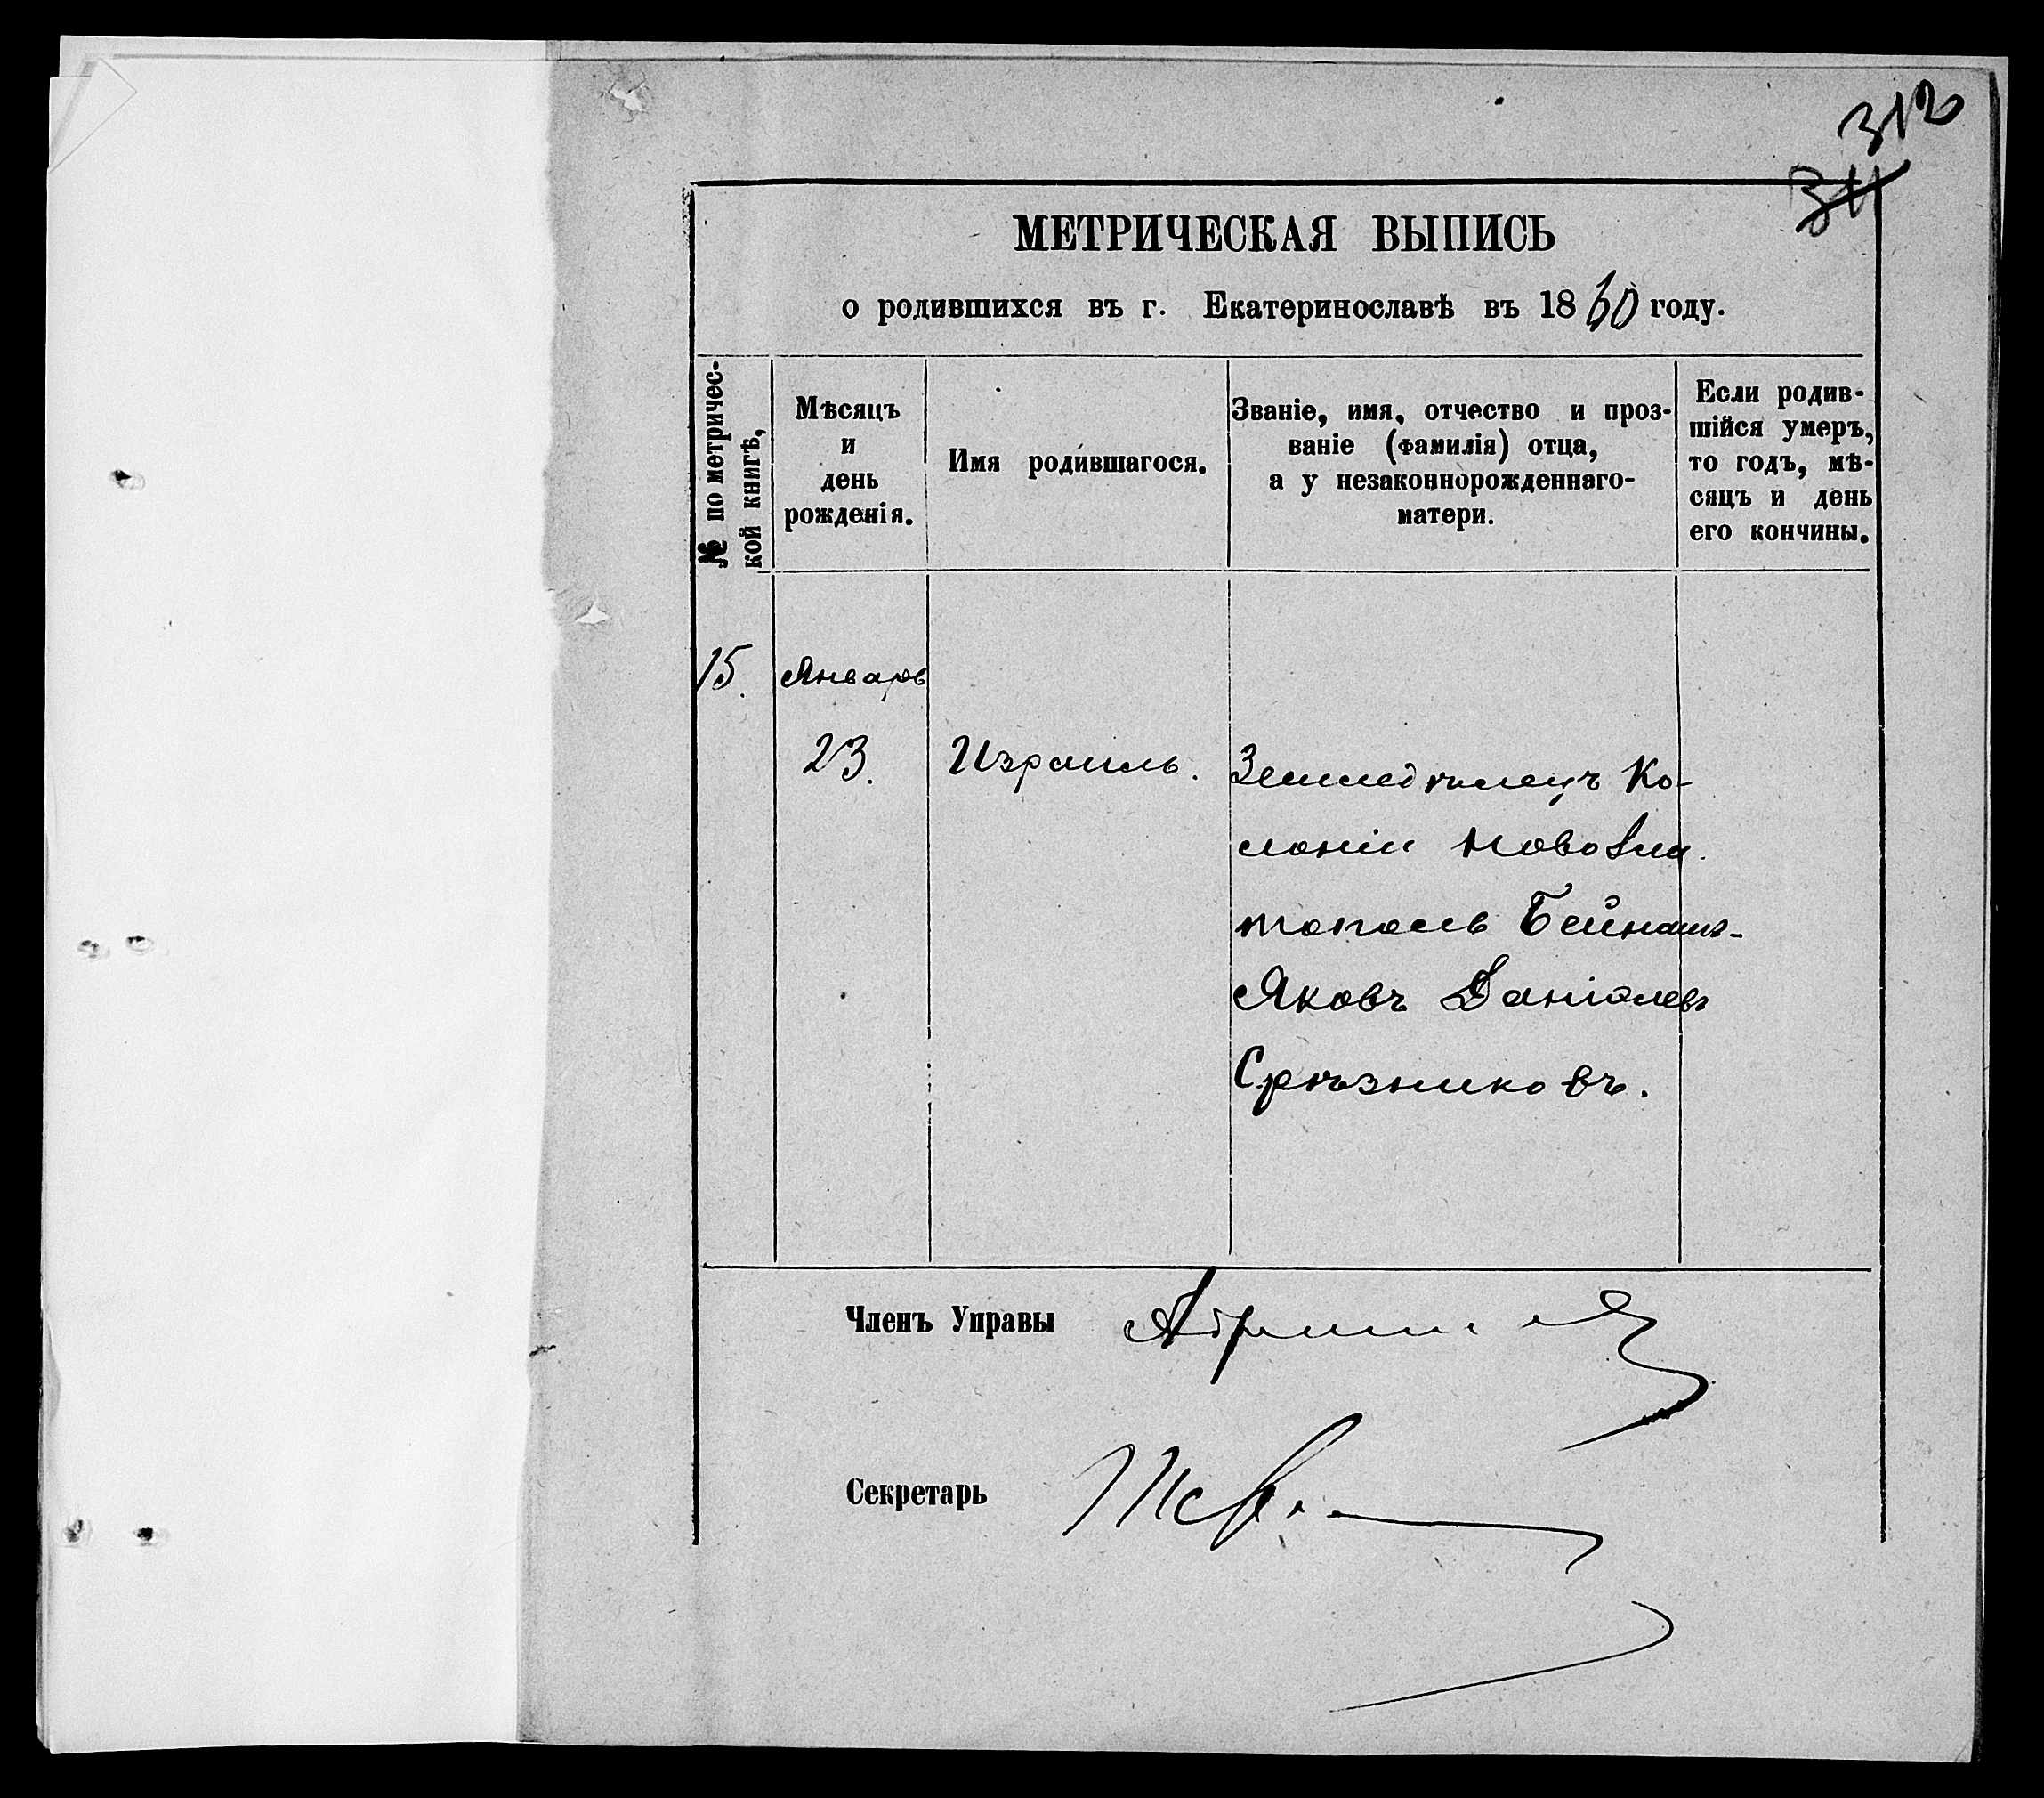 312
311
МЕТРИЧЕСКАЯ ВЫПИСЬ
о родившихся въ г. Екатеринославѣ въ 1860 году.
№ по метричес-
кой книгѣ,
Мѣсяцъ
и
день
рожденія.
Имя родившагося.
Званіе, имя, отчество и проз-
ваніе (фамилія) отца,
а у незаконнорожденнаго-
матери.
Если родив-
шійся умеръ,
то годъ, мѣ-
сяцъ и день
его кончины.
15.
Январь
23.
Израиль.
Земледѣлецъ Ко-
лоніи Новозла
тополь Бейнашъ-
Яковъ Даніелевъ
Срѣзниковъ.
Членъ Управы
Секретарь